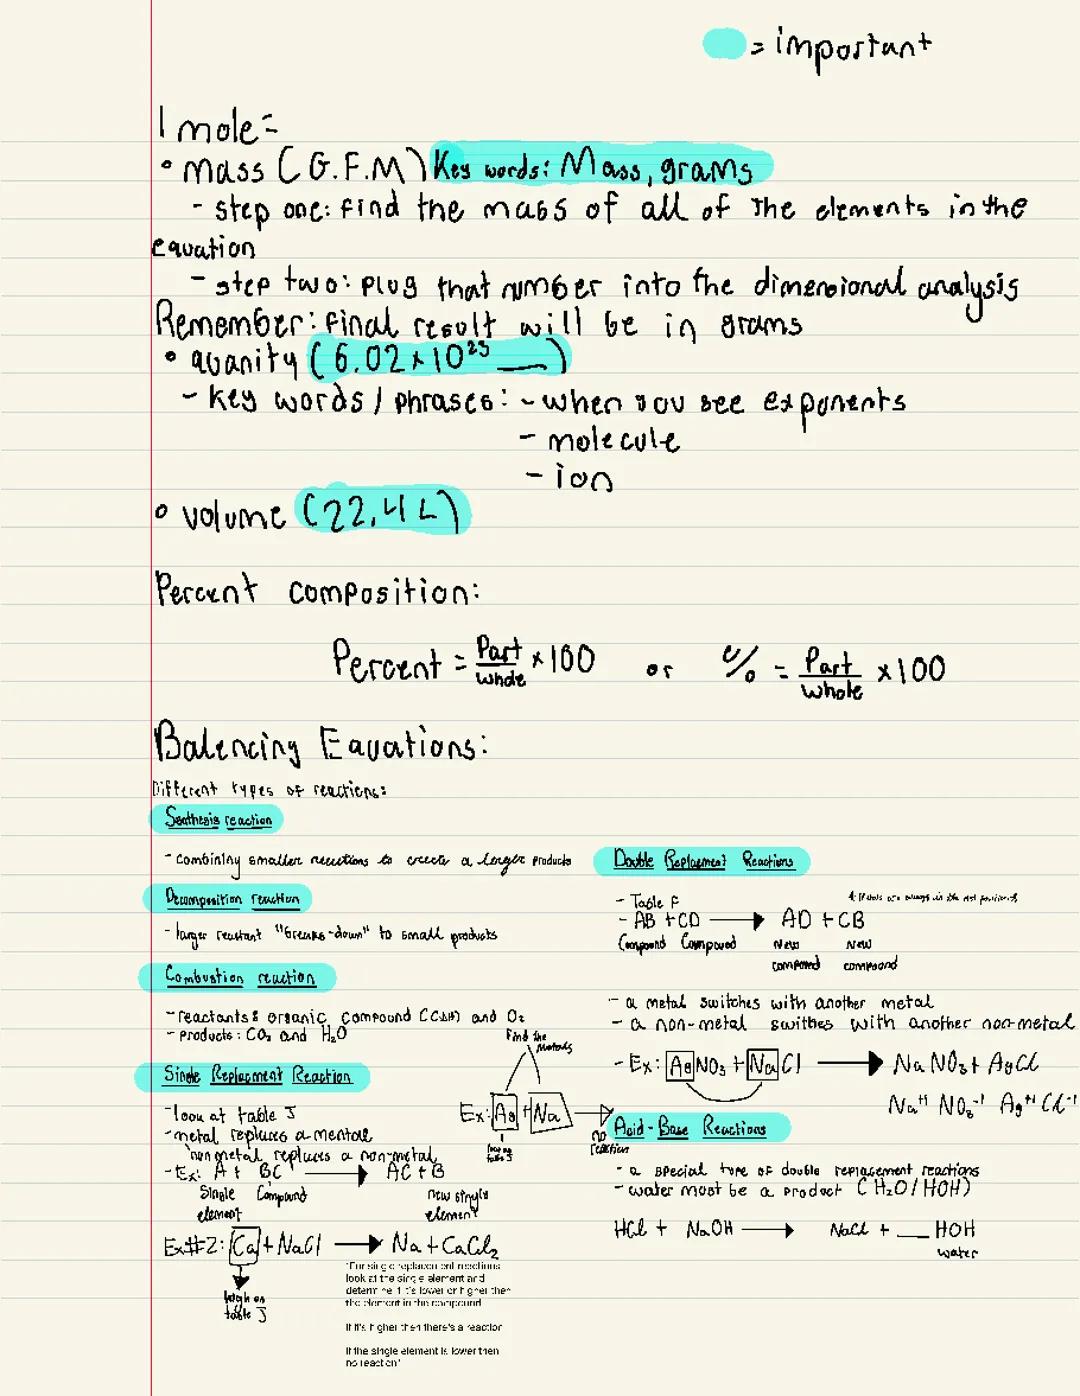 = important
1 mole =
• mass (G.F.M) Key words: Mass, grams
- step one: find the mass of all of the elements in the
equation
- step two: plug that number into the dimensional analysis
Remember: final result will be in grams
• quanity (6.02 x 10²³ __)
- key words / phrases: - when you see exponents
- molecule
- ion
• volume (22.4 L)
Percent composition:
Percent = Part/whole x 100 or % = Part/whole x 100
Balencing Equations:
Different types of reactions:
Senthesis reaction
- combining smaller reactions to create a larger products
Decomposition reaction
- larger reactant "breaks-down" to small products
Combustion reaction
- reactants: organic compound (C&H) and O₂
- products: CO₂ and H₂O
Single Replacment Reaction
- look at table J
- metal replaces a mental
non metal replaces a non-metal
- Ex: A + BC → AC + B
Single Compound new single
element element
Find the
metals
Ex: Ag + Na → no
reaction
Ex#2: Ca + NaCl → Na + CaCl₂
high on
table J
"For single replacement reactions
look at the single element and
determine if it's lower or higher then
the element in the compound
If it's higher then there's a reaction
If the single element is lower then
no reaction"
Double Replacment Reactions
- Table F
- AB + CD → AD + CB
Compound Compound New New
compound compound
- a metal switches with another metal
- a non-metal swithes with another non-metal
- Ex: AgNO₃ + NaCl → NaNO₃ + AgCl
Na⁺¹ NO₃⁻¹ Ag⁺¹ Cl⁻¹
Acid-Base Reactions
- a special type of double replacement reactions
- water most be a product (H₂O/HOH)
HCl + NaOH → NaCl + __ HOH
water